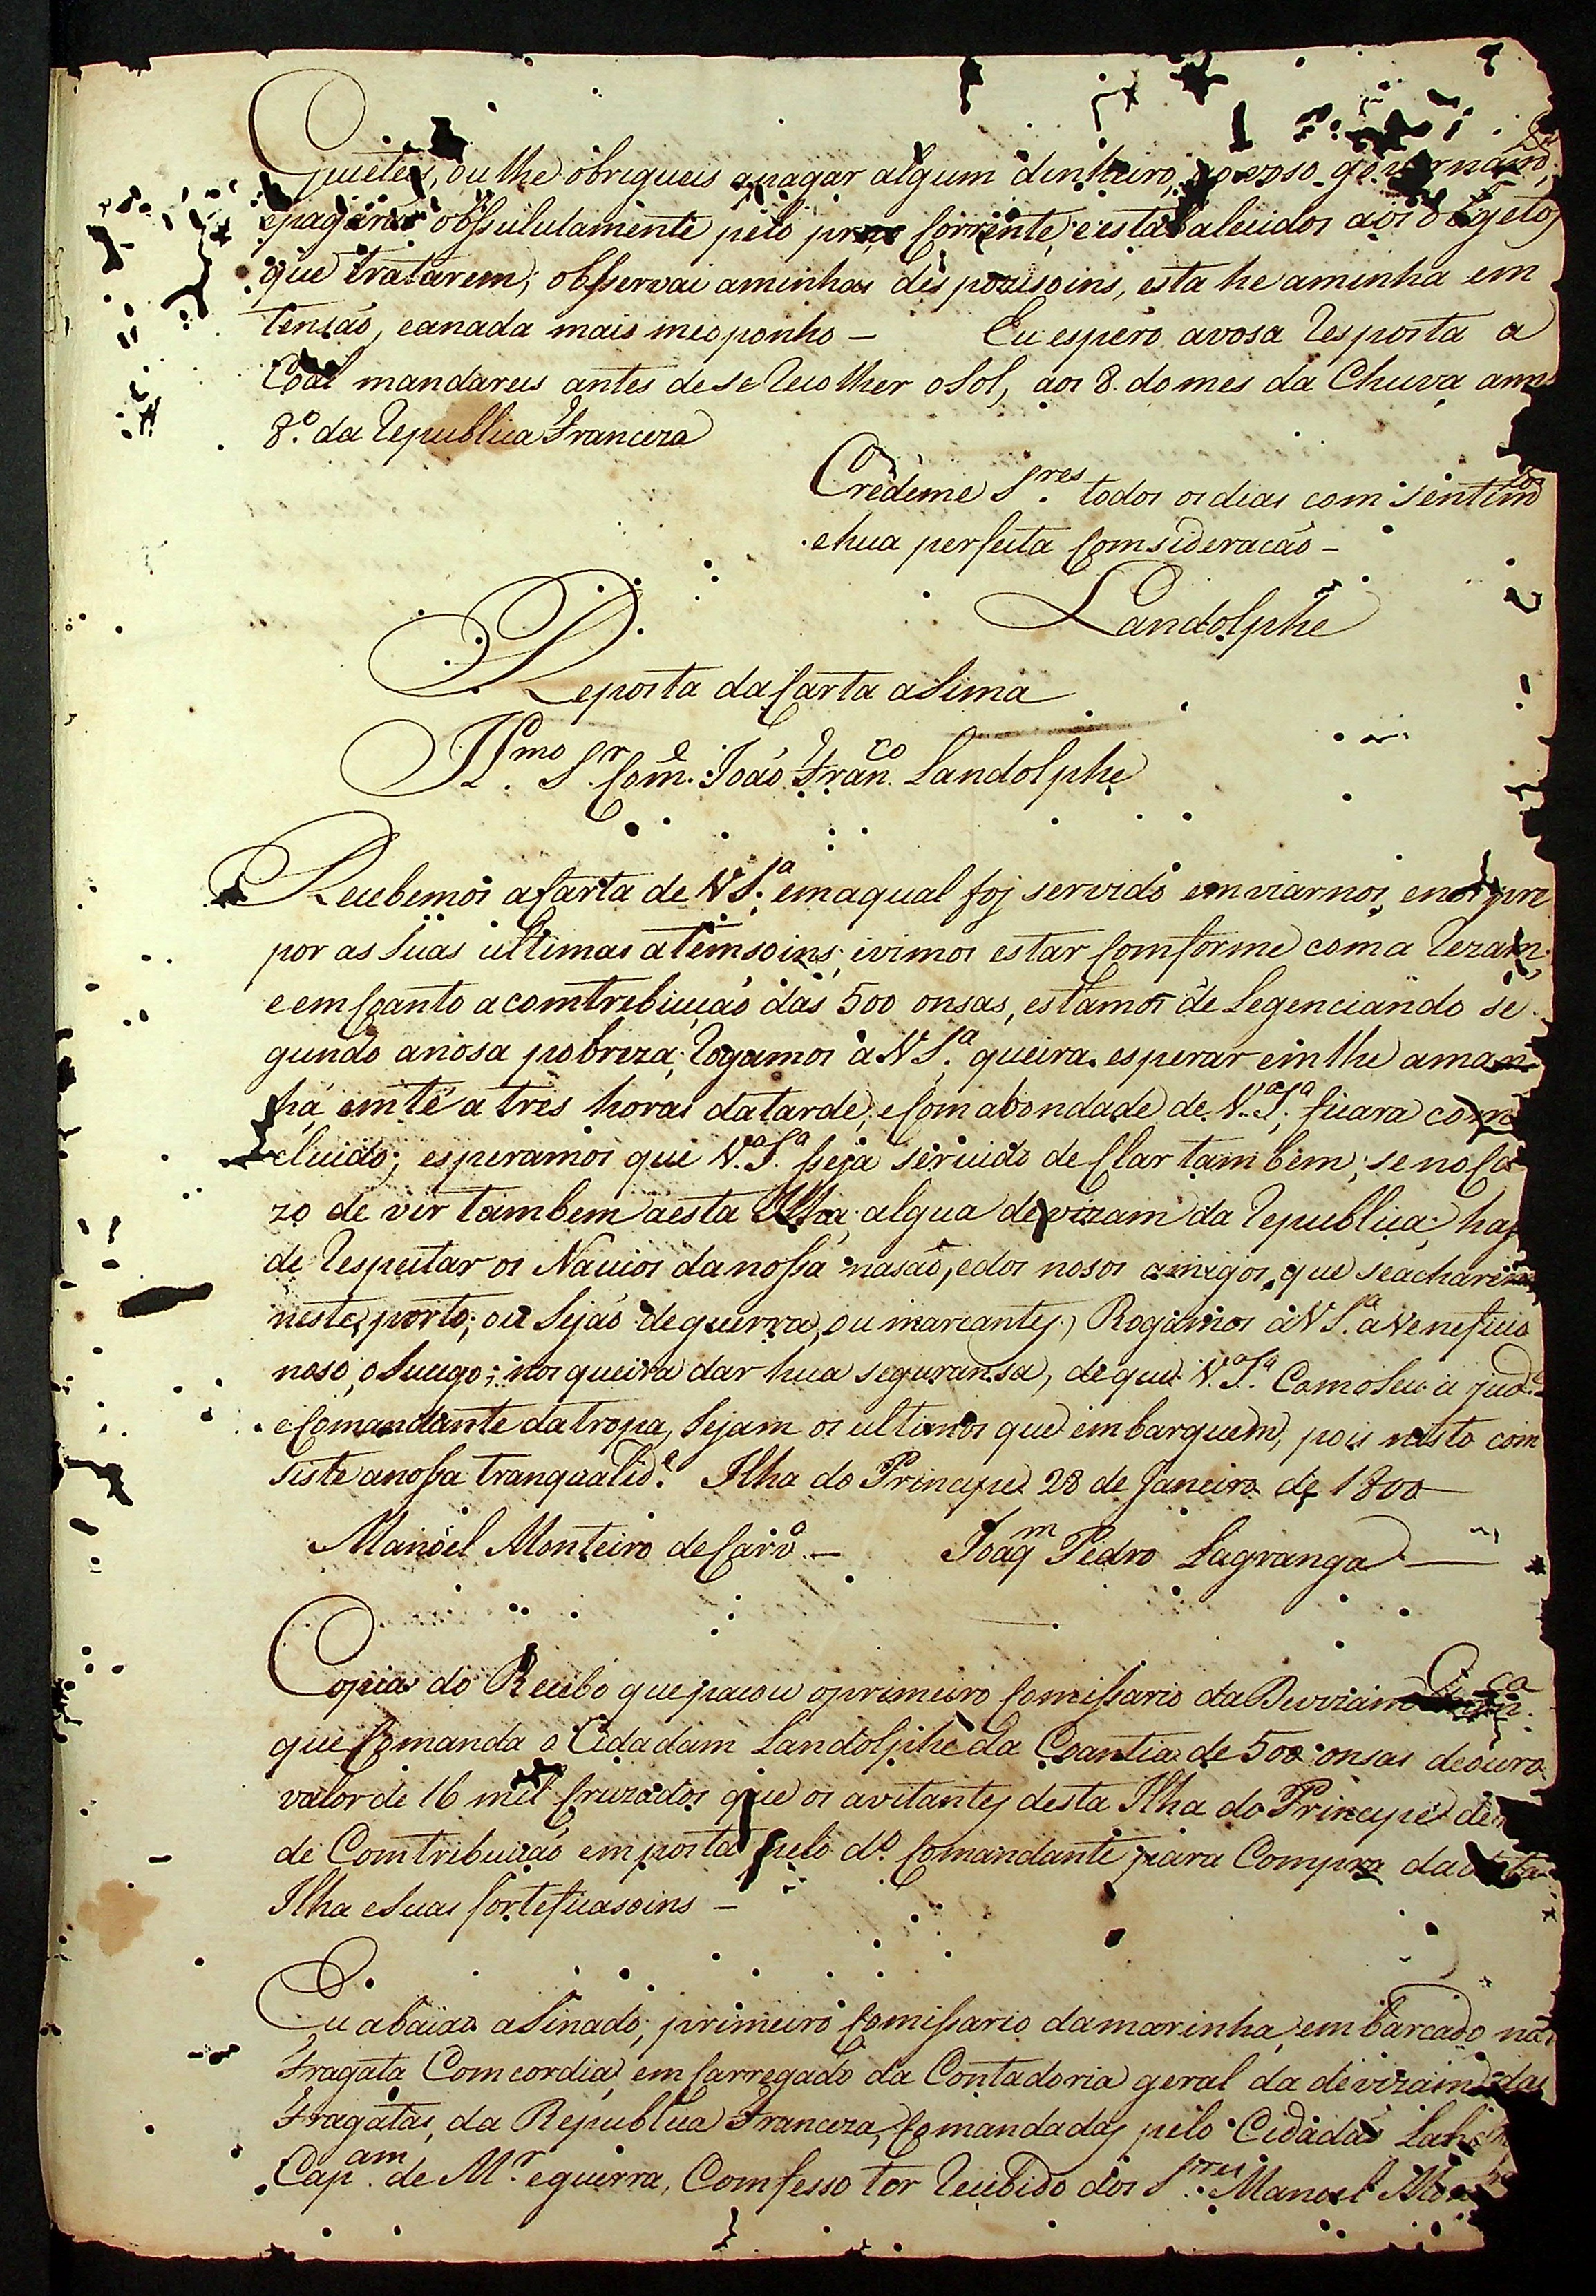 quieteis, ou lhe obrigueis apagar algum dinheiro, ao voso governador,
epagarão obssulutamente pelo preso Corrente, eestabaleudos aos obgetos
que tratarem; obsservai aminhas dispozisoins, esta he aminha em
tensáo, eanada mais meoponho — Eu espero avosa Resposta a
Coal mandareis antes dese Recolher oSol, aos 8. do mes da Chuva anno
8.º da Republica Franceza
Credeme S.res todos osdias com sentim.tos
ehua perfeita Comsideracáo —
Landolphe
Reposta daCarta asima
Il.mo S.r Com.e Joáo Fran.co Landolphe
Recebemos aCarta de V S.a emaqual foj servido emviarnos, en
por as suas ultimas atemsoins; evimos estar Comforme com a Rezam;
eemCoanto acomtrebiuçáo das 500 onsas, estamos deLegenciando se
gundo anosa pobreza; Rogamos a V S.a queira esperar einthe aman
há einté a tres horas datarde, eComabondade de V.a S.a ficara com
cluido; esperamos que V.a S.a seja seruido deClar tambem; se noCa
zo de vir tambem aesta Ilha algua devizam da Republica; haja
de Respeitar os Nauios danossa nasáo, edos nosos amigos, que seacharem
neste porto; ou Sejáo deguerra, ou marcantes; Rogamos aV S.a aVeneficio
noso, oSucego; nos queira dar hua seguransa, deque V.a S.a Comoseu ajud.e
eComandante datropa, Sejam os ultimos que embarquem, pois nisto com
siste anossa tranqualid.e Ilha do Principe 28 de Janeiro de 1800
Manoel Monteiro deCarv.o — Joaq.m Pedro Lagranga —
Copia do Recibo quepasou oprimeiro Comissario da Devizam
que Comanda o Cidadam Landolphe da Coantia de 500 onsas deouro
valor de 16 mil Cruzados que os avitantes desta Ilha do Principe
de Comtribuisáo emposta pelo d.º Comandante para Compra dadita
Ilha eSuas forteficasoins —
Eu abaixo asinado; primeiro Comissario damarinha, embarcado na
Fragata Comcordia, emCarregado da Contadoria geral da devizam das
Fragatas, da Republica Franceza, Comandadas pelo Cidadáo
Cap.am de M.r eguerra, Comfesso ter Recebido dos S.res Manoel